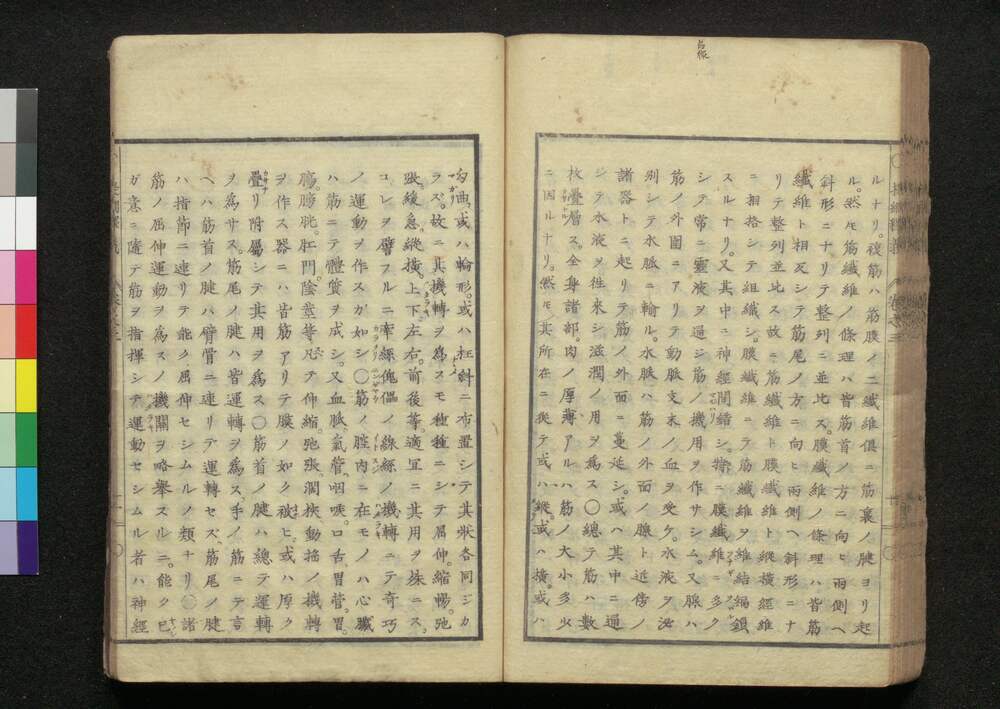 ルナリ。複筋ハ。筋膜ノ二纖維俱ニ筋裏ノ腱ヨリ起
ル。然モ筋纖維ノ條理ハ皆筋首ノ方ニ向ヒ兩側ヘ
斜形ニナリテ整列ニ並比ス。膜纖維ノ條理ハ皆筋
纖維ト相反シテ筋尾ノ方ニ向ヒ兩側ヘ斜形ニナ
リテ整列並比ス故ニ筋纖維ト膜纖維ト縱横經維
ニ相格シテ組織シ。膜纖維ニテ筋纖維ヲ維結緝鎖
スルナリ。又其中ニ神經間錯シ。特ニ膜纖維ニ多ク
シテ常ニ靈液ヲ通シ筋ノ機用ヲ作サシム。又脈ハ
筋ノ外圍ニアリテ動脈支末ノ血ヲ受ケ。水液ヲ泌
別シテ水脈ニ輸ル。水脈ハ筋ノ外面ノ腺ト近傍ノ
諸器トニ起リテ筋ノ外面ニ蔓延シ。或ハ其中ニ通
シテ水液ヲ徃來シ滋潤ノ用ヲ為ス〇總テ筋ハ數
枚疊層ス。全身諸部。肉ノ厚薄アルハ筋ノ大小多少
ニ因ルナリ。然モ其所在ニ從テ或ハ縱。或ハ横。或ハ
勾曲。或ハ輪形。或ハ枉斜ニ布置シテ其狀各同ジカ
ラズ。故ニ其機轉ヲ為スモ種種ニシテ屈伸。縮暢。弛
張。緩急。縱横。上下左右。前後等適宜ニ其用ヲ採ニス。
コレヲ譬フルニ牽絲傀儡ノ線絲ノ機轉ニテ奇巧
ノ運動ヲ作スガ如シ〇筋ノ腔内ニ在モノハ心臟
ハ筋ニテ體質ヲ成シ。又血脈。氣管。咽喉。口舌。胃管。胃。
腸。膀胱。肛門。陰莖等凡テ伸縮。弛張。濶挾動搖ノ機轉
ヲ作ス器ニハ皆筋アリテ膜ノ如ク被ヒ。或ハ厚ク
疊リ附屬シテ其用ヲ為ス〇筋首ノ腱ハ總テ運轉
ヲ為サス。筋尾ノ腱ハ皆運轉ヲ為ス。手ノ筋ニテ言
ヘハ筋首ノ腱ハ臂骨ニ連リテ運轉セズ。筋尾ノ腱
ハ指節ニ連リテ能ク屈伸セシムルノ類ナリ〇諸
筋ノ屈伸運動ヲ為スノ機關ヲ略舉スルニ。能ク己
ガ意ニ隨テ筋ヲ指揮シテ運動セシムル者ハ神經